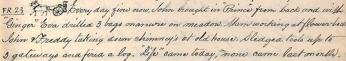 FR 23 Every day fine now. John brought in "Prince" from back and with
"Ginger" Eva drilled 3 bags manure on meadow. Thora working at flower bed
John & Freddy taking down chimney's at old house. Sledged tools up to
3 gateways and fired a log. "Life" came today, none came last month.